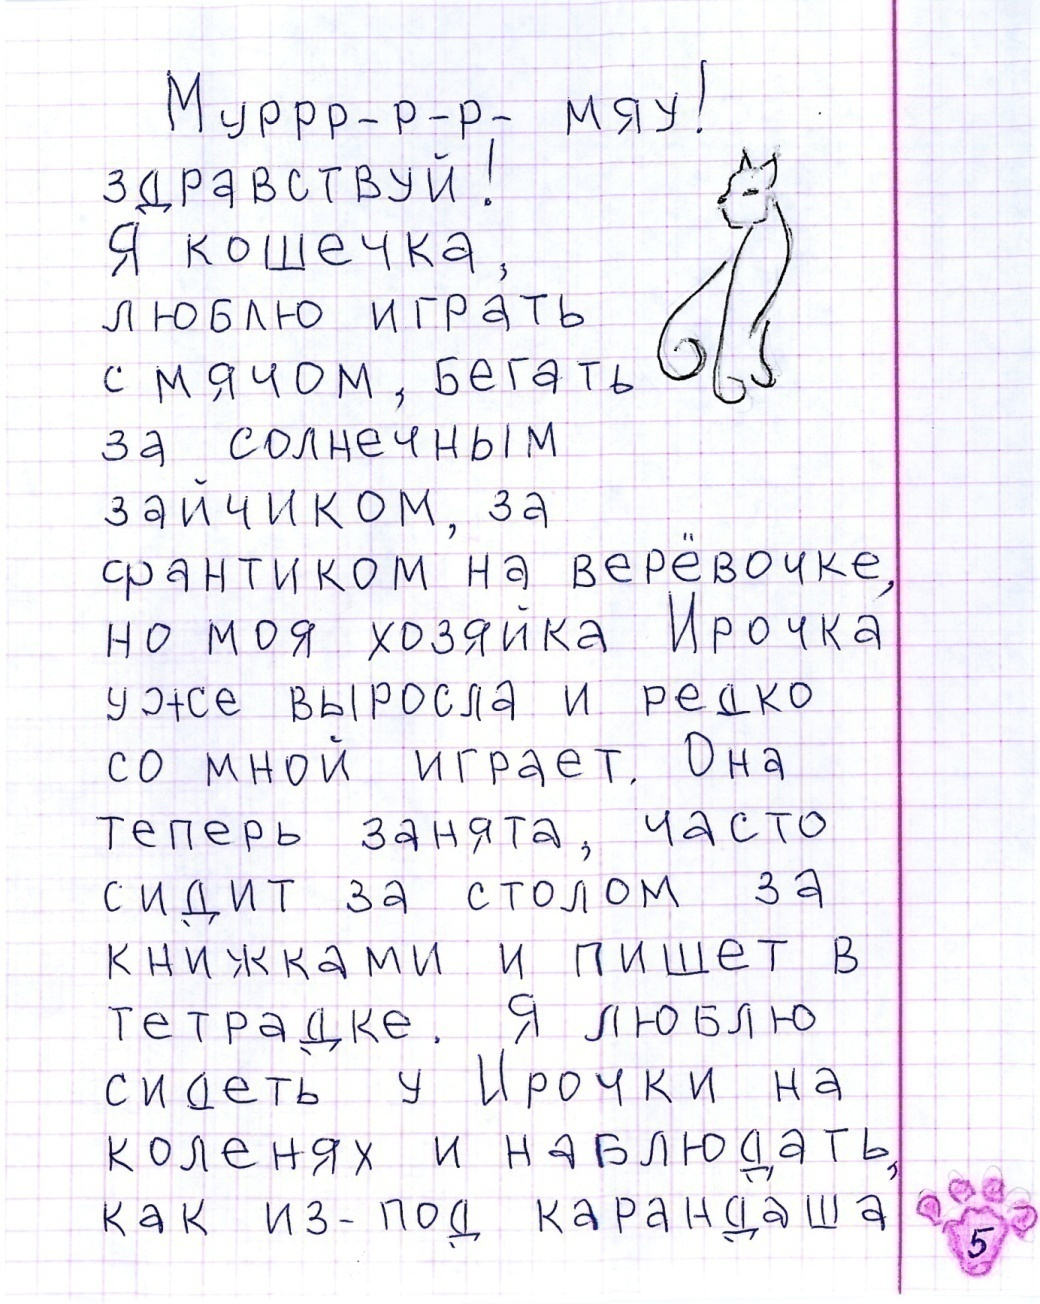 Муррр-р-р- мяу!
здравствуй!
Я кошечка,
люблю играть
с мячом, бегать
за солнечным
зайчиком, за
фантиком на верёвочке,
но моя хозяйка Ирочка
уже выросла и редко
со мной играет. Она
теперь занята, часто
сидит за столом за
книжками и пишет в
тетрадке. Я люблю
сидеть у Ирочки на
коленях и наблюдать,
как из-под карандаша
5